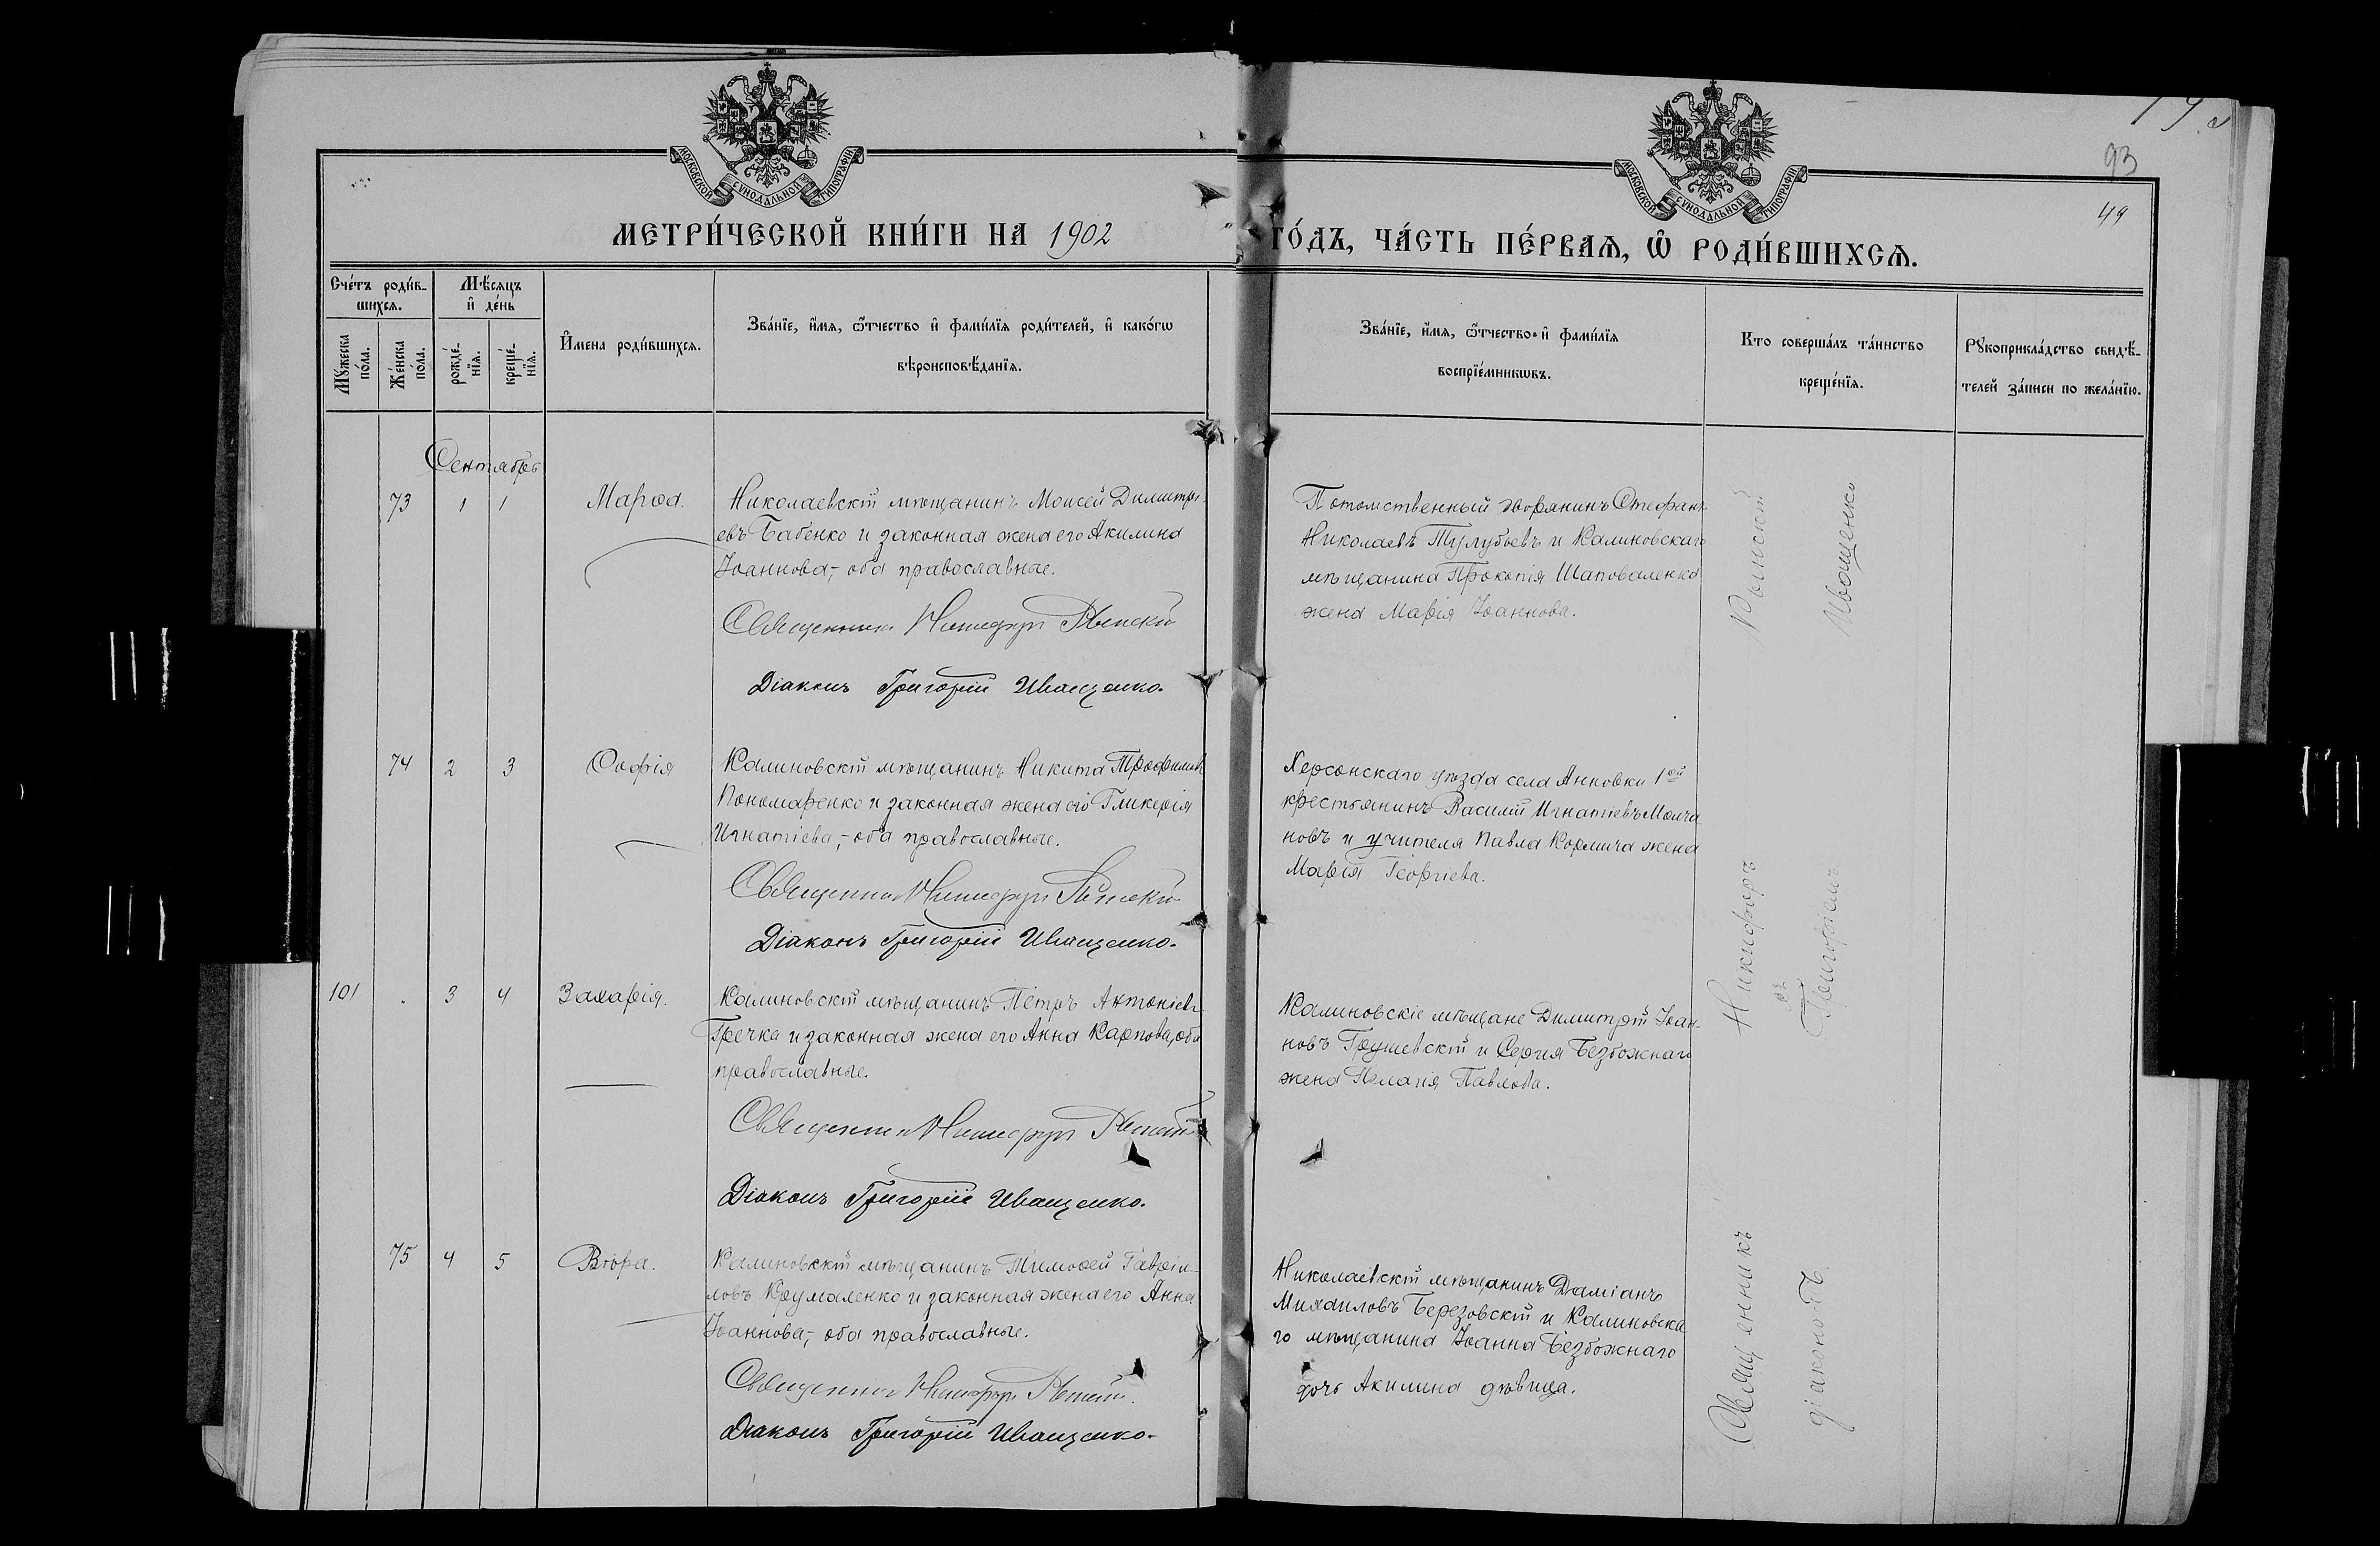 93
49
МОСКОВСКОЙ СѴНОДАЛЬНОЙ ТИПОГРАФІИ
МОСКОВСКОЙ СѴНОДАЛЬНОЙ ТИПОГРАФІИ
МЕТРИ́ЧЕСКОЙ КНИ́ГИ НА 1902
ГО́ДЪ, ЧА́СТЬ ПЕ́РВАѦ, Ѿ РОДИ́ВШИХСѦ.
Сче́тъ роди́в-
шихсѧ.
Мꙋ́жеска
по́ла.
Же́нска
по́ла.
Мѣ́сяцъ
и҆ де́нь
рожде́-
нїѧ.
креще́-
нїѧ.
И҆мена роди́вшихсѧ.
Зва́нїе, и҆́мѧ, ѻ҆́тчество и҆ фами́лїѧ роди́телей, и҆ како́гѡ
вѣроисповѣ́данїѧ.
Зва́нїе, и҆́мѧ, ѻ҆́тчество и҆ фами́лїѧ
воспрїе́мникѡвъ.
Кто соверша́лъ та́инство
креще́нїѧ.
Рꙋкоприкла́дство свидѣ́-
телей за́писи по жела́нїю.
Сентябрь
73 1 1 Марѳа.
Николаевскій мѣщанинъ Моисей Димитрі-
евъ Бабенко и законная жена его Акилина
Іоаннова,- оба православные.
Священникъ Никифоръ
Діаконъ Григорій Иващенко.
Потомственный дворянинъ Стефанъ
Николаевъ Тулубьевъ и Калиновскаго
мѣщанина Прокопія Шаповаленка
жена Марія Іоаннова.
74 2 3 Софія
Калиновскій мѣщанинъ Никита Трофимовъ
Пономаренко и законная жена его Гликерія
Игнатіева,- оба православные.
Священникъ Никифоръ
Діаконъ Григорій Иващенко.
Херсонскаго уѣзда села Анновки 1ой
крестьянинъ Василій Игнатіевъ Молча
новъ и учителя Павла Кормича жена
Марія Георгіева.
101 . 3 4 Захарія.
Калиновскій мѣщанинъ Петръ Антоніевъ
Гречка и законная жена его Анна Карпова, оба
православные.
Священникъ Никифоръ
Діаконъ Григорій Иващенко.
Калиновскіе мѣщане Димитрій Іоан-
новъ Грушевскій и Сергія Безбожнаго
жена Пелагія Павлова.
75 4 5 Вѣра.
Калиновскій мѣщанинъ Тимоѳей Гавріи-
ловъ и законная жена его Анна
Іоаннова,- оба православные.
Священникъ Никифоръ
Діаконъ Григорій Иващенко.
Николаевскій мѣщанинъ Даміанъ
Михаиловъ Березовскій и Калиновска
го мѣщанина Іоанна Безбожнаго
дочь Акилина дѣвица.
Священникъ Никифоръ
съ
діакономъ Григоріемъ Иващенко